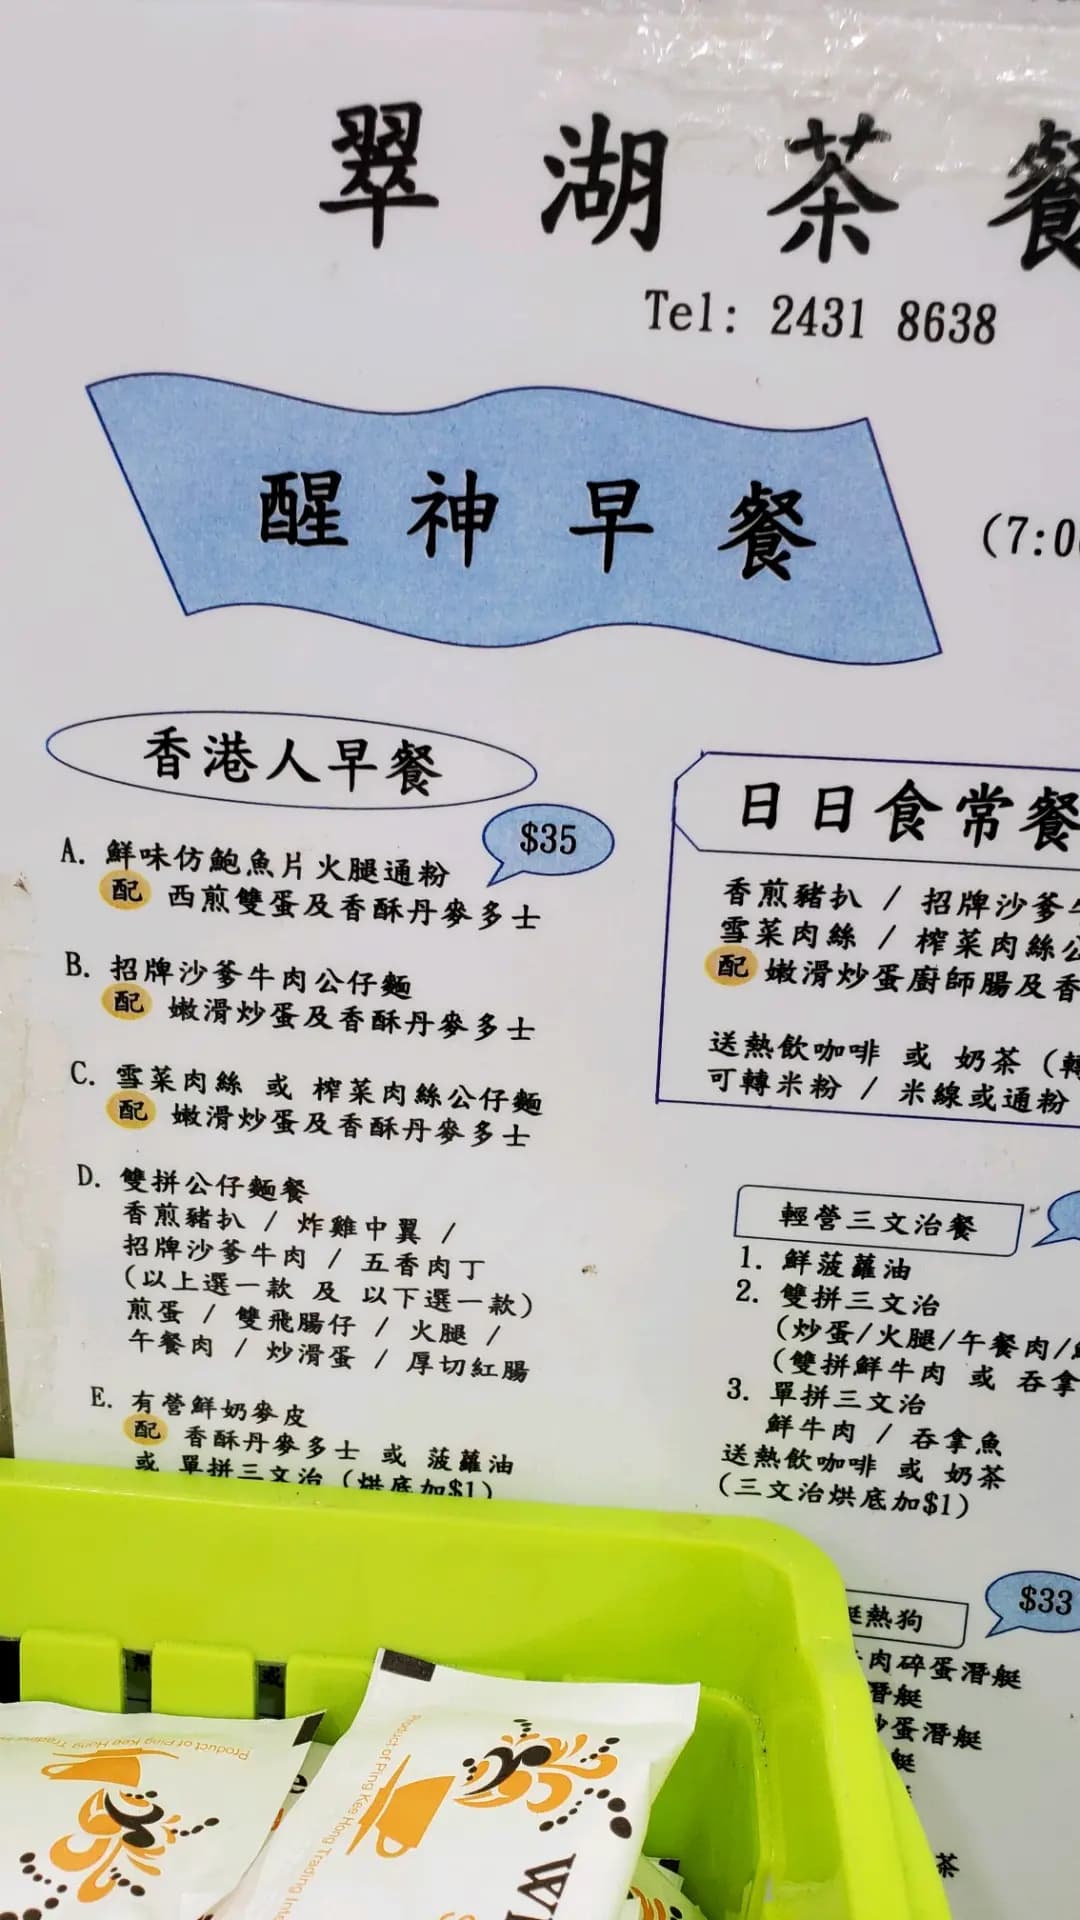 翠湖茶餐
Tel: 2431 8638
醒神早餐
(7:0
香港人早餐
$35
A. 鮮味仿鮑魚片火腿通粉
配 西煎雙蛋及香酥丹麥多士
B. 招牌沙爹牛肉公仔麵
配 嫩滑炒蛋及香酥丹麥多士
C. 雪菜肉絲 或 榨菜肉絲公仔麵
配 嫩滑炒蛋及香酥丹麥多士
D. 雙拼公仔麵餐
香煎豬扒 / 炸雞中翼 /
招牌沙爹牛肉 / 五香肉丁
(以上選一款 及 以下選一款)
煎蛋 / 雙飛腸仔 / 火腿 /
午餐肉 / 炒滑蛋 / 厚切紅腸
E. 有營鮮奶麥皮
配 香酥丹麥多士 或 菠蘿油
或 單拼三文治 (烘底加$1)
日日食常餐
香煎豬扒 / 招牌沙爹牛
雪菜肉絲 / 榨菜肉絲公
配 嫩滑炒蛋廚師腸及香
送熱飲咖啡 或 奶茶 (轉
可轉米粉 / 米線或通粉
輕營三文治餐
1. 鮮菠蘿油
2. 雙拼三文治
(炒蛋/火腿/午餐肉/
(雙拼鮮牛肉 或 吞拿
3. 單拼三文治
鮮牛肉 / 吞拿魚
送熱飲咖啡 或 奶茶
(三文治烘底加$1)
熱狗
$33
肉碎蛋潛艇
潛艇
炒蛋潛艇
艇
茶
Product of Ping Kee Hong Trading
Product of Ping Kee Hong Trading Inte